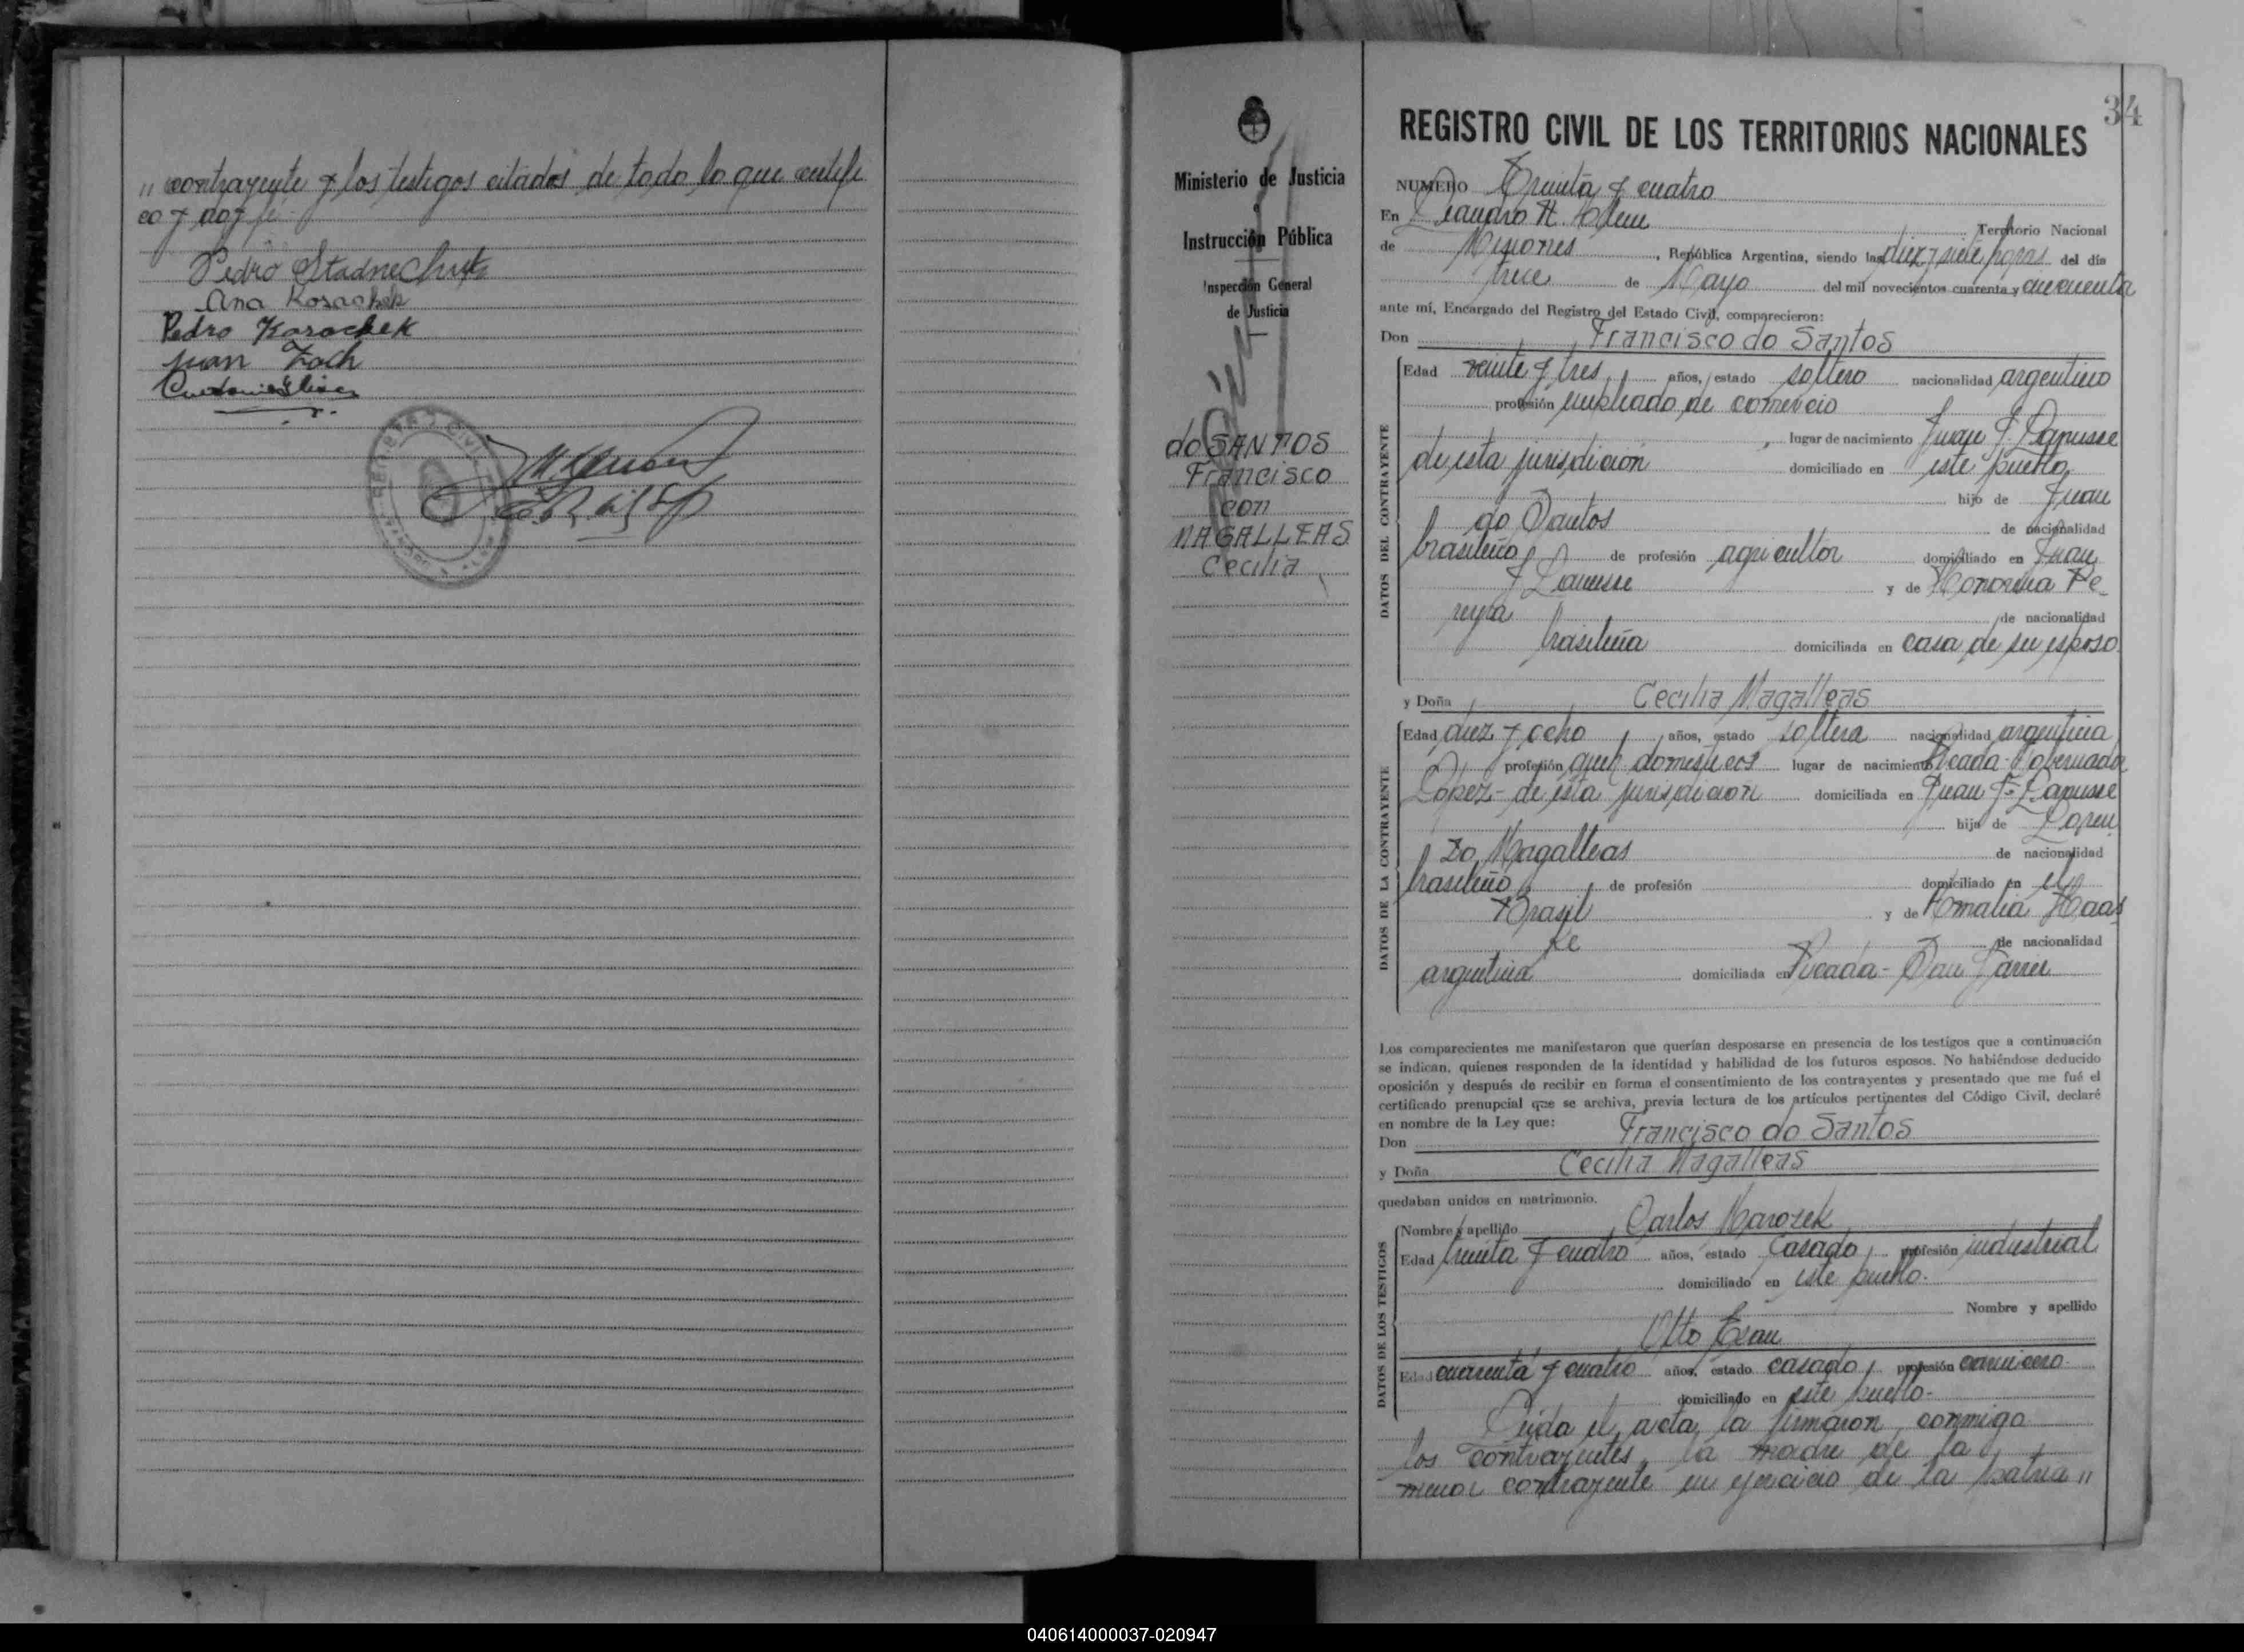 „ contrayente y los testigos citados de todo lo que certifi
co y doy fé.-
Pedro Stadnechuk
Ana Kosachek
Pedro Korachek
Juan Zoch
REGISTRO CIVIL
34
Ministerio de Justicia
e
Instrucción Pública
Inspección General
de Justicia
do SANTOS
Francisco
con
MAGALLEAS
Cecilia
REGISTRO CIVIL DE LOS TERRITORIOS NACIONALES
NUMERO Treinta y cuatro
En Leandro N. Alem Territorio Nacional
de Misiones, República Argentina, siendo las diez y siete horas del día
trece de Mayo del mil novecientos cuarenta y cincuenta
ante mí, Encargado del Registro del Estado Civil, comparecieron:
Don Francisco do Santos
DATOS DEL CONTRAYENTE
Edad veinte y tres años, estado soltero nacionalidad argentino
profesión empleado de comercio
, lugar de nacimiento Juan J. Lanusse
de esta jurisdición domiciliado en este pueblo
hijo de Juan
do Santos de nacionalidad
brasileño de profesión agricultor domiciliado en Juan
J Lanusse y de Honorina Pe-
reyra de nacionalidad
brasileña domiciliada en casa de su esposo
y Doña Cecilia Magalleas
DATOS DE LA CONTRAYENTE
Edad diez y ocho años, estado soltera nacionalidad argentina
profesión queh. domesticos lugar de nacimiento Picada-Gobernador
López- de esta jurisdicion domiciliada en Juan J. Lanusse
hija de Loren
zo Magalleas de nacionalidad
brasileño de profesión domiciliado en el
Brasil y de Amalia Haas
ke de nacionalidad
argentina domiciliada en Picada- San Javier
Los comparecientes me manifestaron que querían desposarse en presencia de los testigos que a continuación
se indican, quienes responden de la identidad y habilidad de los futuros esposos. No habiéndose deducido
oposición y después de recibir en forma el consentimiento de los contrayentes y presentado que me fué el
certificado prenupcial que se archiva, previa lectura de los artículos pertinentes del Código Civil, declaré
en nombre de la Ley que:
Don Francisco do Santos
y Doña Cecilia Magalleas
quedaban unidos en matrimonio.
DATOS DE LOS TESTIGOS
Nombre y apellido Carlos Marozek
Edad treinta y cuatro años, estado casado profesión industrial
domiciliado en este pueblo.
Nombre y apellido
Otto
Edad cuarenta y cuatro años, estado casado profesión carnicero.
domiciliado en este pueblo-
Leída el acta, la firmaron conmigo
los contrayentes, la madre de la
menor contrayente en ejercicio de la patria „
040614000037-020947